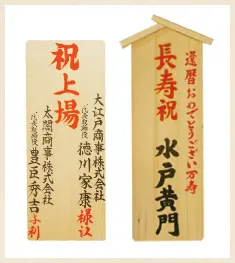 祝上場
大江戸商事株式会社
代表取締役
徳川家康様江
太閤商事株式会社
代表取締役
豊臣秀吉与利
還暦おめでとうござい万寿
長寿祝
水戸黄門